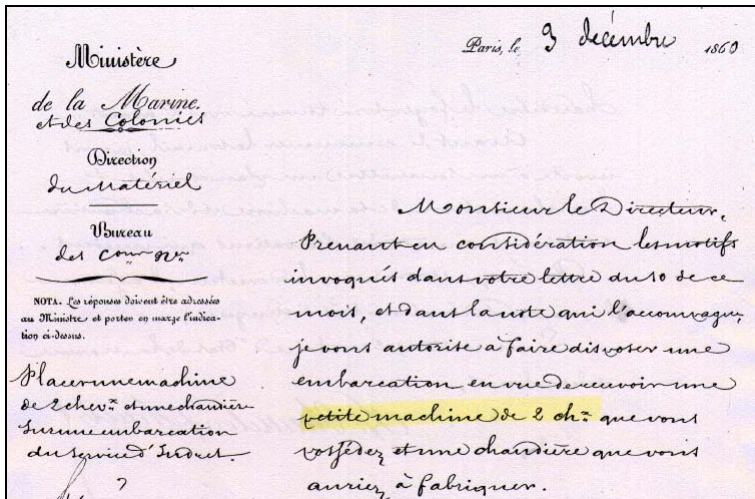 Ministère
de la Marine.
et des Colonies
Direction
du Matériel
Bureau
des Com
NOTA. Les réponses doivent être adressées
au Ministre et porter en marge l'indica-
tion ci-dessus.
Placer une machine
de 2 chev.x et une chaudière
sur une embarcation
du service d'Indret.
Paris, le 3 décembre 1860
Monsieur le Directeur,
Prenant en considération les motifs
invoqués dans votre lettre du 10 de ce
mois, et dans la note qui l'accompagne,
je vous autorise à faire disposer une
embarcation en vue de recevoir une
petite machine de 2 ch.x que vous
possédez et une chaudière que vous
auriez à fabriquer.